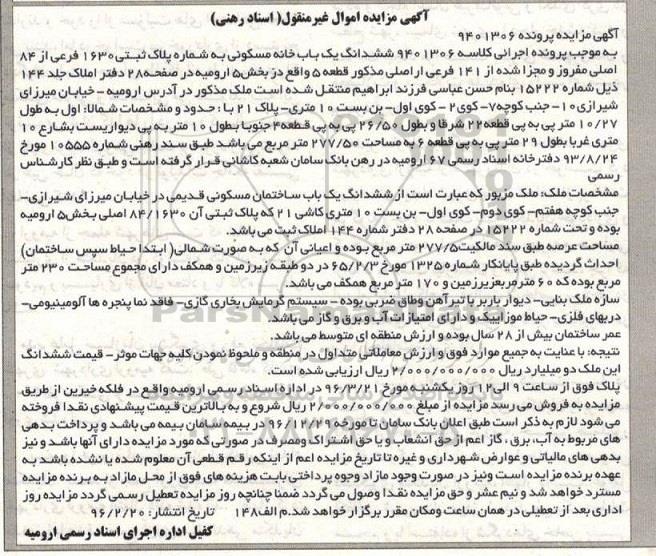 آگهی مزایده اموال غیرمنقول( اسناد رهنی)
آگهی مزایده پرونده ۹۴۰۱۳۰۶
به موجب پرونده اجرائی کلاسه ۹۴۰۱۳۰۶ ششدانگ یک باب خانه مسکونی به شماره پلاک ثبتی ۱۶۳۰ فرعی از ۸۴
اصلی مفروز و مجزا شده از ۱۴۱ فرعی از اصلی مذکور قطعه ۵ واقع در بخش۵ ارومیه در صفحه۲۸ دفتر املاک جلد ۱۴۴
ذیل شماره ۱۵۲۲۲ بنام حسن عباسی فرزند ابراهیم منتقل شده است ملک مذکور در آدرس ارومیه - خیابان میرزای
شیرازی ۱۰- جنب کوچه۷- کوی۲ - کوی اول- بن بست ۱۰ متری- پلاک ۲۱ با : حدود و مشخصات شمالا: اول به طول
۱۰/۲۷ متر پی به پی قطعه۲۲ شرقا و بطول ۲۶/۵۰ پی به پی قطعه۴ جنوبا بطول ۱۰ متر به پی دیواریست بشارع ۱۰
متری غربا بطول ۲۹ متر پی به پی قطعه ۶ به مساحت ۲۷۷/۵۰ متر مربع می باشد طبق سند رهنی شماره ۱۰۵۵۵ مورخ
۹۳/۸/۲۴ دفترخانه اسناد رسمی ۶۷ ارومیه در رهن بانک سامان شعبه کاشانی قرار گرفته است و طبق نظر کارشناس
رسمی
مشخصات ملک: ملک مزبور که عبارت است از ششدانگ یک باب ساختمان مسکونی قدیمی در خیابان میرزای شیرازی-
جنب کوچه هفتم- کوی دوم- کوی اول- بن بست ۱۰ متری کاشی ۲۱ که پلاک ثبتی آن ۸۴/۱۶۳۰ اصلی بخش۵ ارومیه
بوده و تحت شماره ۱۵۲۲۲ در صفحه ۲۸ دفتر شماره ۱۴۴ املاک ثبت می باشد.
مساحت عرصه طبق سند مالکیت ۲۷۷/۵ متر مربع بوده و اعیانی آن که به صورت شمالی( ابتدا حیاط سپس ساختمان)
احداث گردیده طبق پایانکار شماره ۱۳۲۵ مورخ ۶۵/۲/۳ در دو طبقه زیرزمین و همکف دارای مجموع مساحت ۲۳۰ متر
مربع بوده که ۶۰ متر مربع زیرزمین و ۱۷۰ متر مربع همکف می باشد.
سازه ملک بنایی- دیوار باربر با تیرآهن وطاق ضربی بوده - سیستم گرمایش بخاری گازی- فاقد نما پنجره ها آلومینیومی-
دربهای فلزی- حیاط موزاییک و دارای امتیازات آب و برق و گاز می باشد.
عمر ساختمان بیش از ۲۸ سال بوده و ارزش منطقه ای متوسط می باشد.
نتیجه: با عنایت به جمیع موارد فوق و ارزش معاملاتی متداول در منطقه و ملحوظ نمودن کلیه جهات موثر- قیمت ششدانگ
این ملک دو میلیارد ریال ۲/۰۰۰/۰۰۰/۰۰۰ ریال ارزیابی شده است.
پلاک فوق از ساعت ۹ الی۱۲ روز یکشنبه مورخ ۹۶/۳/۲۱ در اداره اسناد رسمی ارومیه واقع در فلکه خیرین از طریق
مزایده به فروش می رسد مزایده از مبلغ ۲/۰۰۰/۰۰۰/۰۰۰ ریال شروع و به بالاترین قیمت پیشنهادی نقدا فروخته
می شود لازم به ذکر است طبق اعلان بانک سامان تا مورخه ۹۶/۱۲/۲۴ در بیمه سامان بیمه می باشد و پرداخت بدهی
های مربوط به آب، برق ، گاز اعم از حق انشعاب و یا حق اشتراک و مصرف در صورتی که مورد مزایده دارای آنها باشد و نیز
بدهی های مالیاتی و عوارض شهرداری و غیره تا تاریخ مزایده اعم از اینکه رقم قطعی آن معلوم شده یا نشده باشد به
عهده برنده مزایده است ونیز در صورت وجود مازاد وجوه پرداختی بابت هزینه های فوق از محل مازاد به برنده مزایده
مسترد خواهد شد و نیم عشر و حق مزایده نقدا وصول می گردد ضمنا چنانچه روز مزایده تعطیل رسمی گردد مزایده روز
اداری بعد از تعطیلی در همان ساعت ومکان مقرر برگزار خواهد شد.م الف۱۴۸ تاریخ انتشار: ۹۶/۲/۲۰
کفیل اداره اجرای اسناد رسمی ارومیه